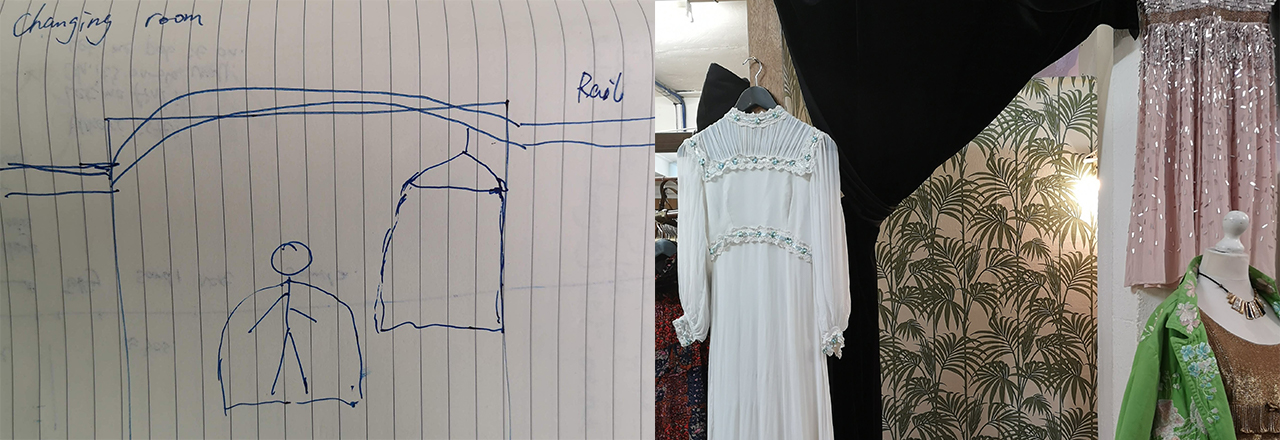 Changing room
Rail